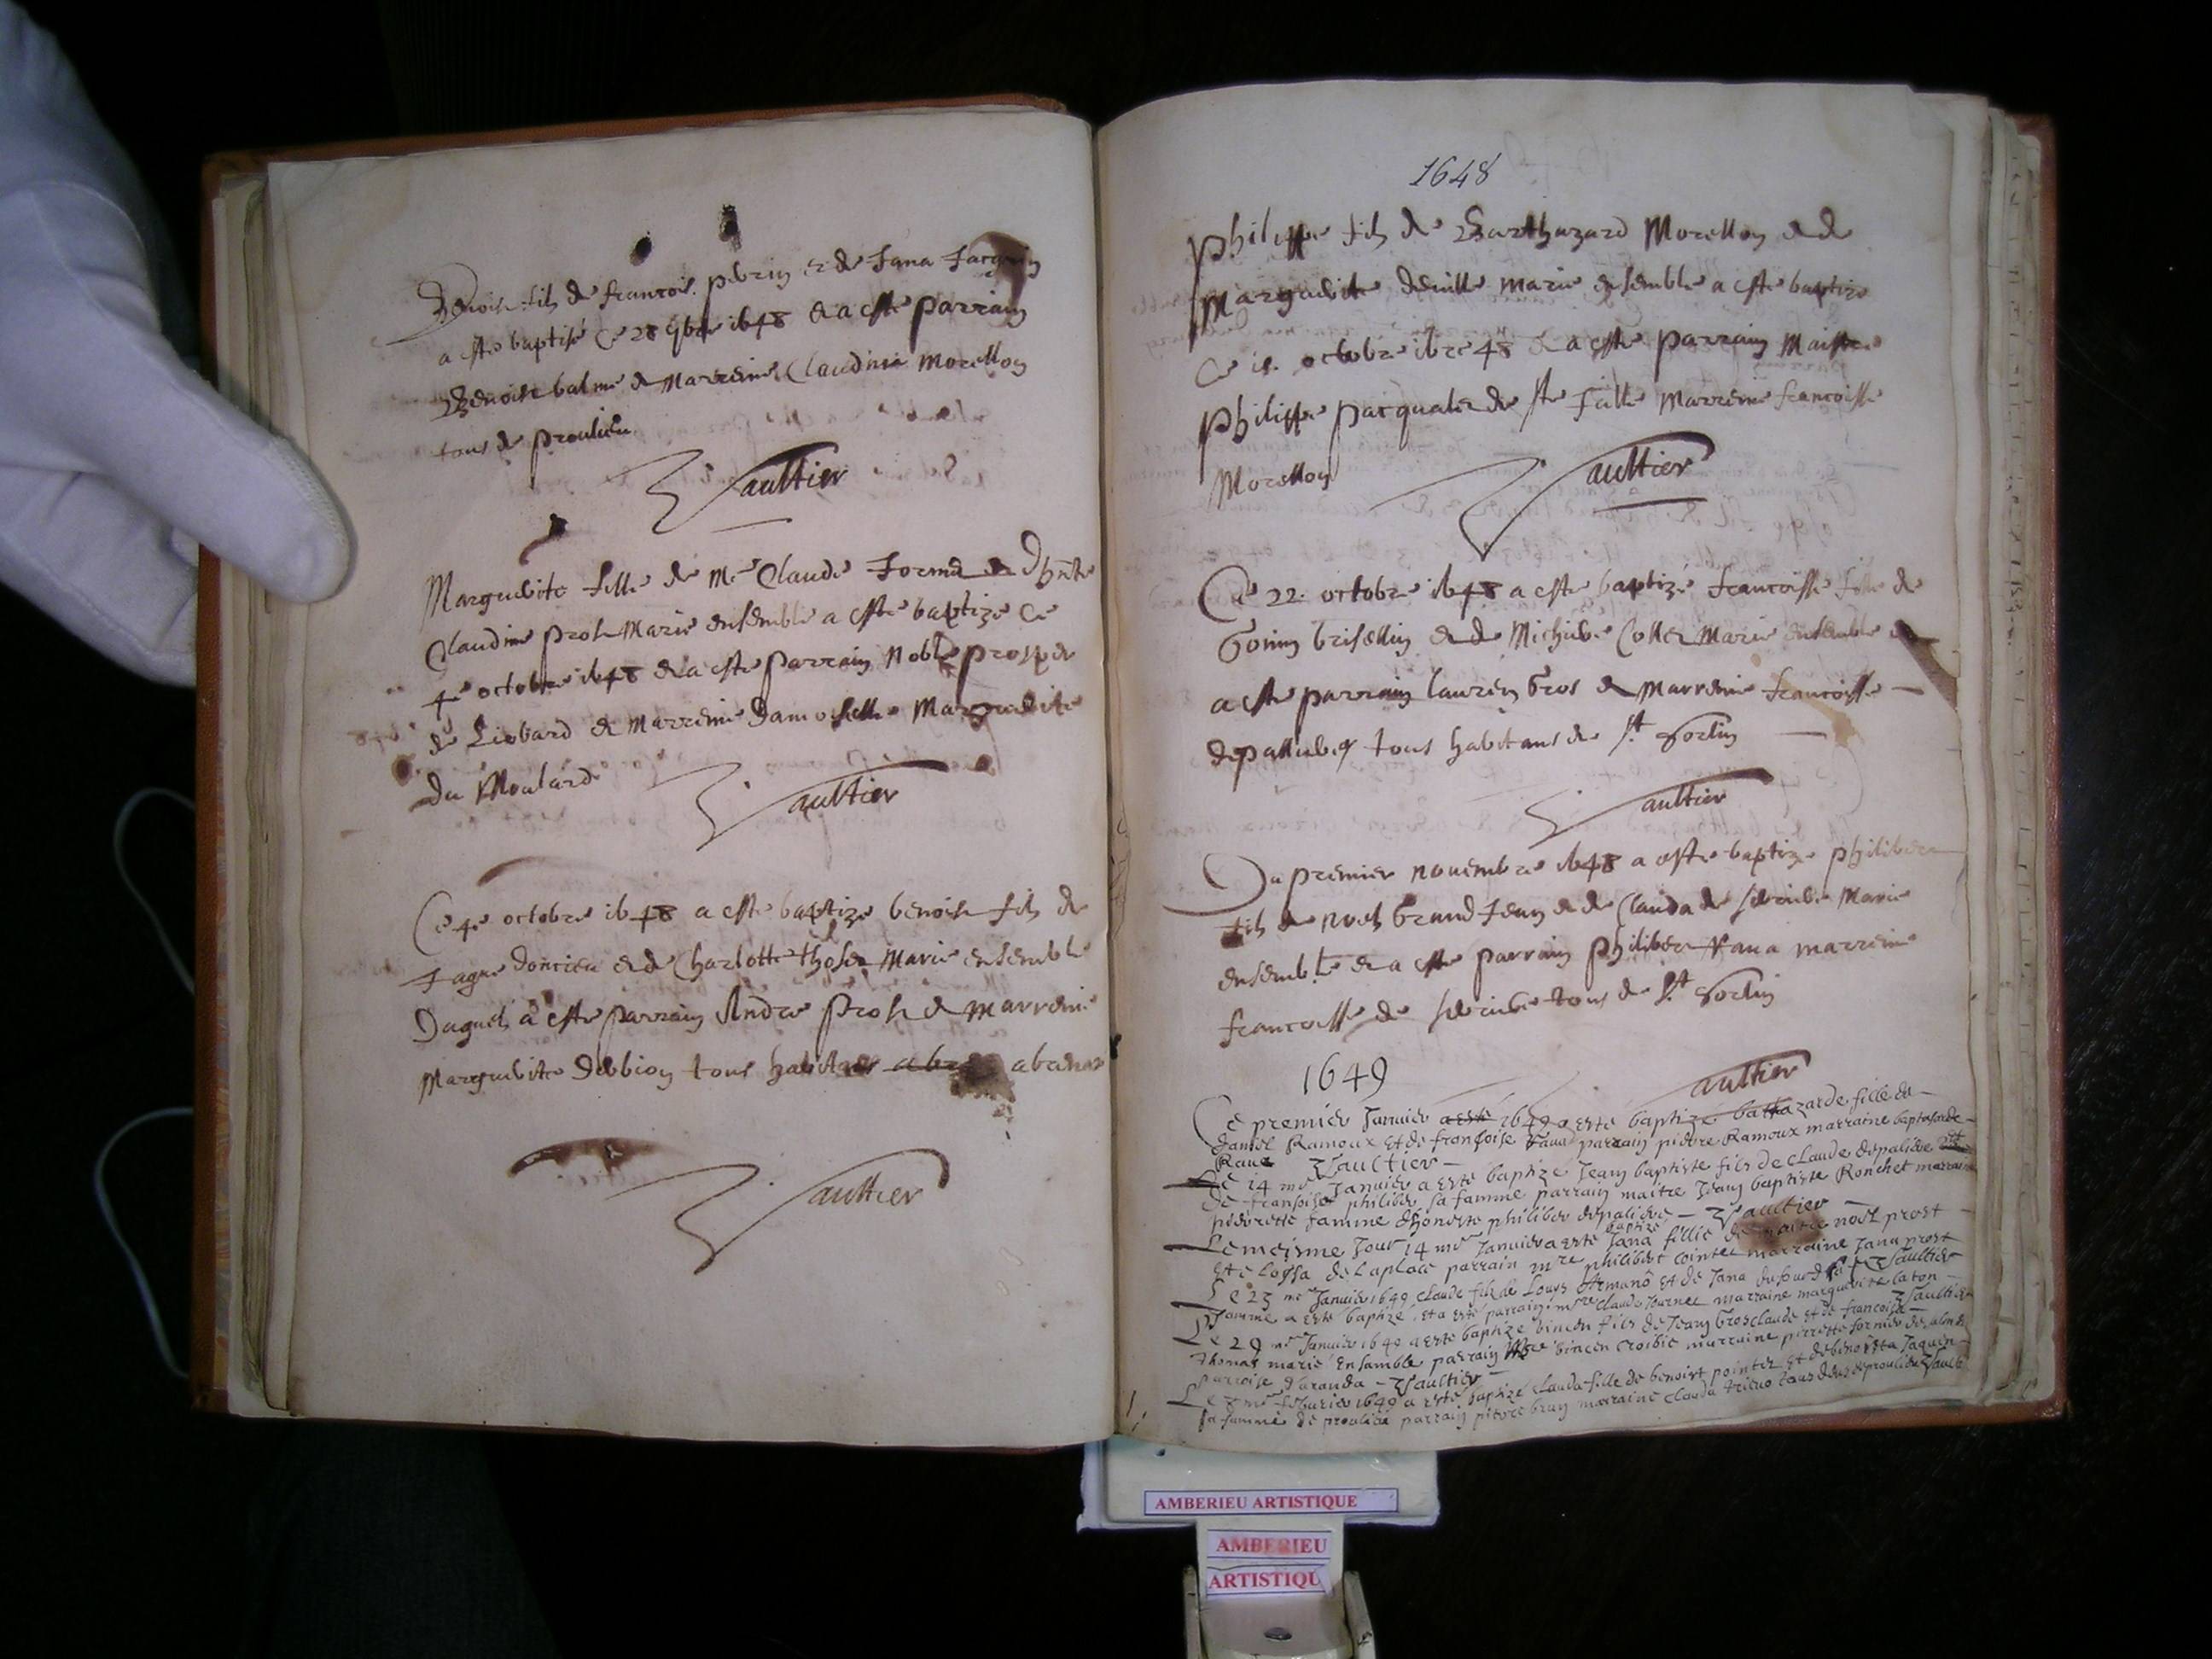 Benoist fils de francois perrin et de Jana Jacquin
a este baptisé Ce 28 7bre 1648 et a este parrain
Benoist balme et Marreine Claudine Morellon
tous de proulieu
Gaultier
Marguerite fille de Mre Claude fornier et dhnte
Claudine prost Marié ensemble a este baptize Ce
4e octobre 1648 et a este parrain Noble prosper
de Liobard et Marreine Damoiselle Marguerite
du Moulard
Gaultier
Ce 4e octobre 1648 a este baptize benoist fils de
Jaque doncieu et de Charlotte Marié ensemble
Duquel a este parrain Andre prost et marreine
Marguerite Debion tous habitans
Gaultier
1648
Philippe fils de Barthazard Morellon et de
Marguerite deville marié ensemble a este baptize
Ce octobre 1648 et a este parrain Maistre
Philippe pacqualet de Ste Julle Marreine francoisse
Morellon
Gaultier
Ce 22 octobre 1648 a este baptizé francoisse fille de
Gonin brisellin et de Collet Marié ensemble et
a este parrain lauren Gros et marreine francoisse
depalluber tous habitans de St Sorlin
Gaultier
Du premier novembre 1648 a este baptize philiber
fils de noel Grand Jean et de Clauda de Marié
ensemble et a este parrain philiber Rana marreine
francoisse de tous de St Sorlin
1649
Gaultier
Ce premier Janvier 1649 a este baptize baltazarde fille de
daniel Ramoux et de françoise parrain pierre Ramoux marraine
Gaultier
Le 14 me Janvier a este baptize Jean baptiste fils de Claude depaliere
de françoise philiber sa famme parrain maitre Jean baptiste Ronchet marraine
pierrette famme dhoneste philiber depaliere Gaultier
Le mesme Jour 14 me Janvier a este baptize Jana fillie de maitre noel prost
et de Laplace parrain mre philibert Cointet marraine Jana prost
Le 23 me Janvier 1649 Claude fils de Louys et de Jana dufour sa Gaultier
famme a este baptizé et a este parrain mre Claude marraine marguerite
Le 29 me Janvier 1649 a este baptize vincen fils de Jean Grosclaude et de francoise Gaultier
Thomas marié Ensamble parrain vincen Croibie marraine pierrette fornier
parroise daranda Gaultier
Le me 1649 a este baptizé Clauda fille de benoist pointet et de benoista
sa famme de proulieu parrain pierre brun marraine Clauda tous deux de proulieu Gaultier
AMBERIEU ARTISTIQUE
AMBERIEU
ARTISTIQU